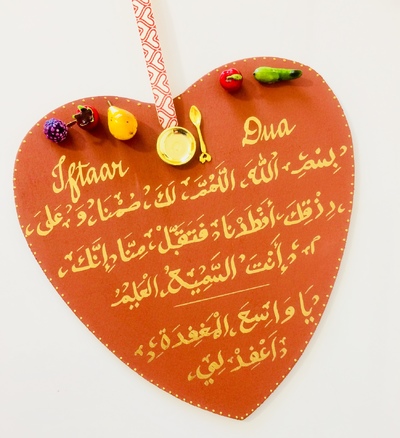 Iftaar Dua
بِسْمِ اللّٰهِ، اَللّٰهُمَّ لَكَ صُمْنَا وَعَلىٰ
رِزْقِكَ أَفْطَرْنَا فَتَقَبَّلْ مِنَّا إِنَّكَ
أَنْتَ السَّمِيْعُ الْعَلِيْمُ
يَا وَاسِعَ الْمَغْفِرَةِ
اِغْفِرْ لِي